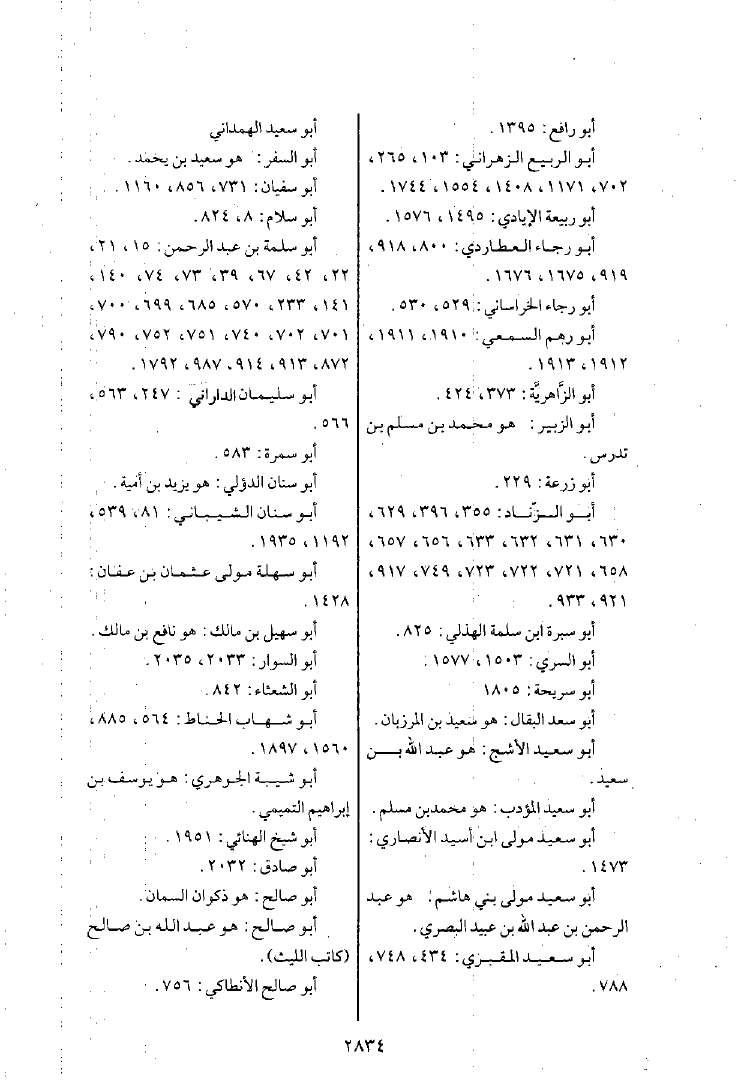 أبو رافع: ١٣٩٥.
أبو الربيع الزهراني: ١٠٣، ٢٦٥،
٧٠٢، ١١٧١، ١٤٠٨، ١٥٥٤، ١٧٤٤.
أبو ربيعة الإيادي: ١٤٩٥، ١٥٧٦.
أبو رجاء العطاردي: ٨٠٠، ٩١٨،
٩١٩، ١٦٧٥، ١٦٧٦.
أبو رجاء الخراساني: ٥٢٩، ٥٣٠.
أبو رهم السمعي: ١٩١٠، ١٩١١،
١٩١٢، ١٩١٣.
أبو الزَّاهريَّة: ٣٧٣، ٤٢٤.
أبو الزبير: هو محمد بن مسلم بن
تدرس.
أبو زرعة: ٢٢٩.
أبو الزّناد: ٣٥٥، ٣٩٦، ٦٢٩،
٦٣٠، ٦٣١، ٦٣٢، ٦٣٣، ٦٥٦، ٦٥٧،
٦٥٨، ٧٢١، ٧٢٢، ٧٢٣، ٧٤٩، ٩١٧،
٩٢١، ٩٣٣.
أبو سبرة ابن سلمة الهذلي: ٨٢٥.
أبو السري: ١٥٠٣، ١٥٧٧.
أبو سريحة: ١٨٠٥
أبو سعد البقال: هو سعيد بن المرزبان.
أبو سعيد الأشج: هو عبد الله بن
سعيد.
أبو سعيد المؤدب: هو محمدبن مسلم.
أبو سعيد مولى ابن أسيد الأنصاري:
١٤٧٣.
أبو سعيد مولى بني هاشم: هو عبد
الرحمن بن عبد الله بن عبيد البصري.
أبو سعيد المقبري: ٤٣٤، ٧٤٨،
٧٨٨.
أبو سعيد الهمداني
أبو السفر: هو سعيد بن يحمد.
أبو سفيان: ٧٣١، ٨٥٦، ١١٦٠.
أبو سلام: ٨، ٨٢٤.
أبو سلمة بن عبد الرحمن: ١٥، ٢١،
٢٢، ٤٢، ٦٧، ٣٩، ٧٣، ٧٤، ١٤٠،
١٤١، ٢٣٣، ٥٧٠، ٦٨٥، ٦٩٩، ٧٠٠،
٧٠١، ٧٠٢، ٧٤٠، ٧٥١، ٧٥٢، ٧٩٠،
٨٧٢، ٩١٣، ٩١٤، ٩٨٧، ١٧٩٢.
أبو سليمان الداراني: ٢٤٧، ٥٦٣،
٥٦٦.
أبو سمرة: ٥٨٣.
أبو سنان الدؤلي: هو يزيد بن أمية.
أبو سنان الشيباني: ٨١، ٥٣٩،
١١٩٢، ١٩٣٥.
أبو سهلة مولى عثمان بن عفان:
١٤٢٨.
أبو سهيل بن مالك: هو نافع بن مالك.
أبو السوار: ٢٠٣٣، ٢٠٣٥.
أبو الشعثاء: ٨٤٢.
أبو شهاب الحناط: ٥٦٤، ٨٨٥،
١٥٦٠، ١٨٩٧.
أبو شيبة الجوهري: هو يوسف بن
إبراهيم التميمي.
أبو شيخ الهنائي: ١٩٥١.
أبو صادق: ٢٠٣٢.
أبو صالح: هو ذكوان السمان.
أبو صالح: هو عبد الله بن صالح
(كاتب الليث).
أبو صالح الأنطاكي: ٧٥٦.
٢٨٣٤